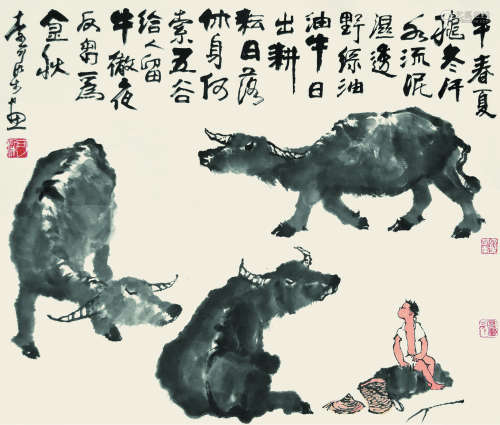 年春夏
秋冬汗
水流泥
湿透
野绿油
油牛日
出耕
耘日落
休身何
索五谷
给人留
牛彻夜
反刍为
金秋